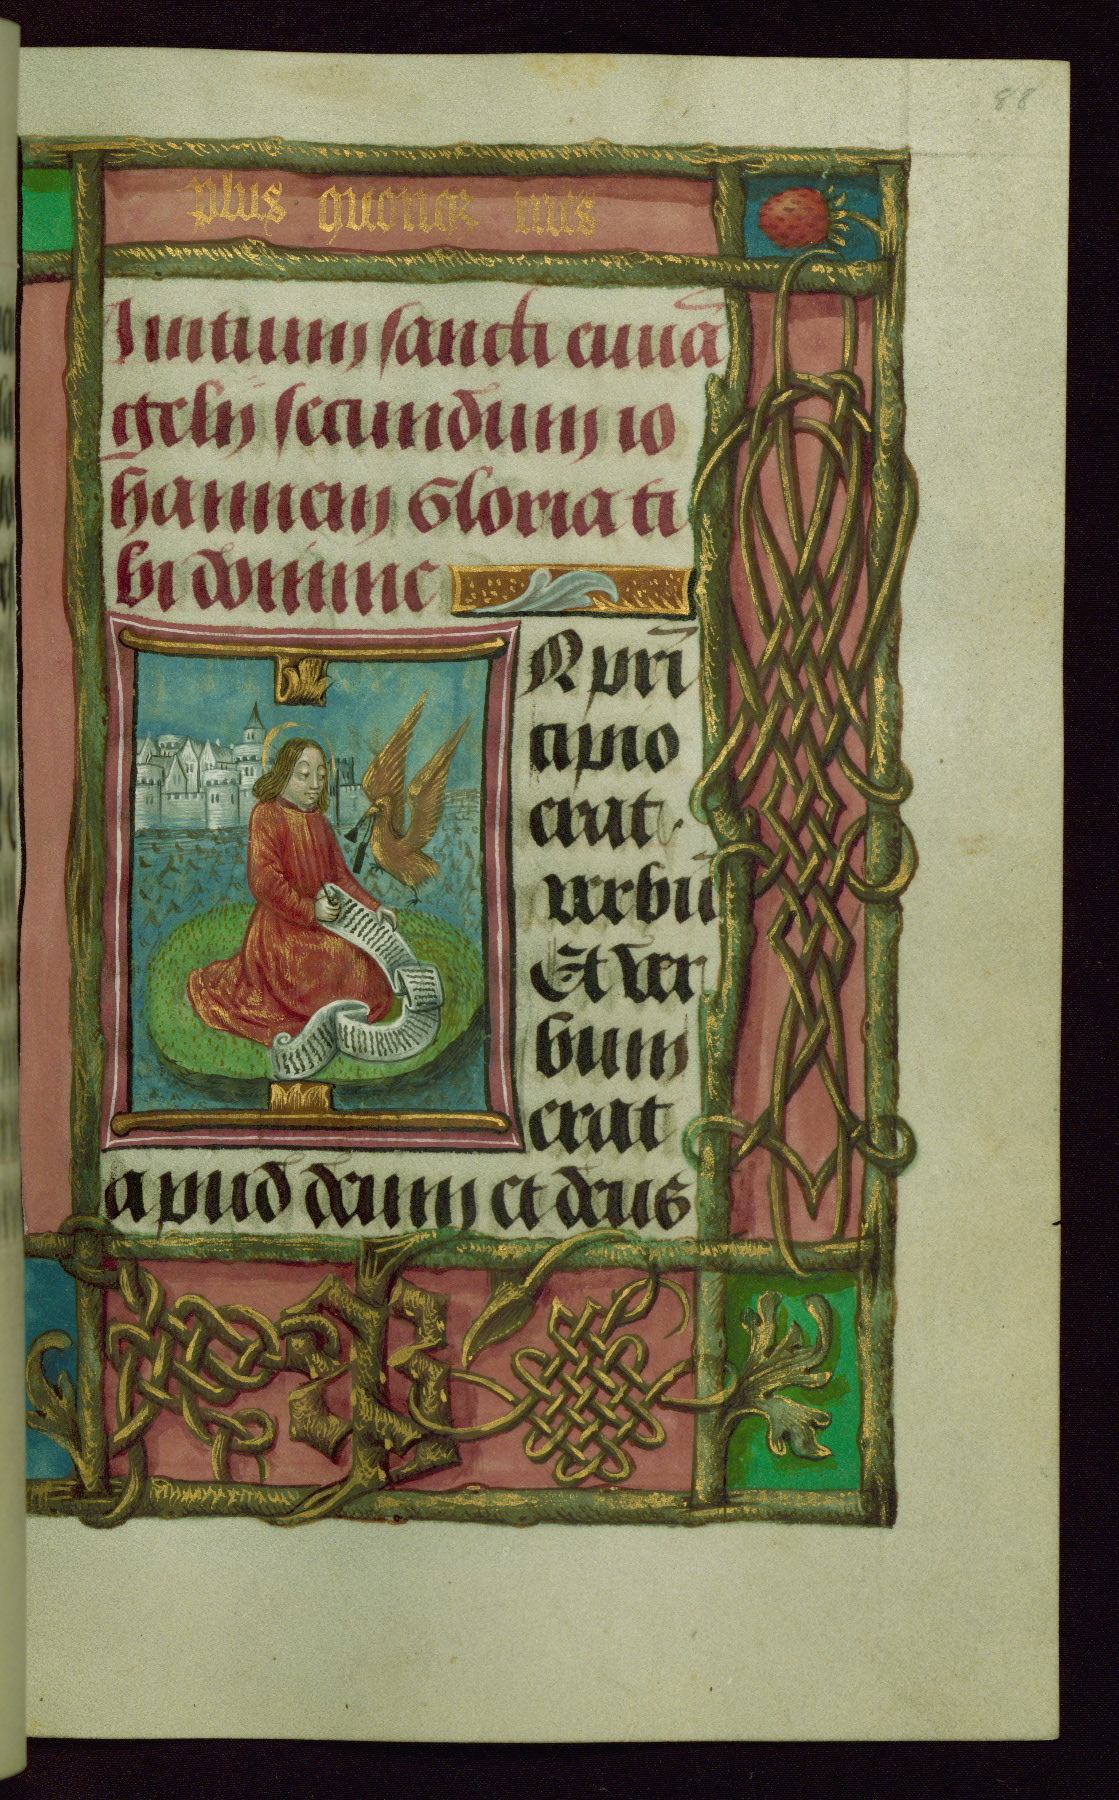 88
plus quonqz mes
Initium sancti euuā
gelij secundum io
hannem Gloria ti
bi domine
N pri
cipio
erat
verbū
Et ver
bum
erat
apud deum et deus